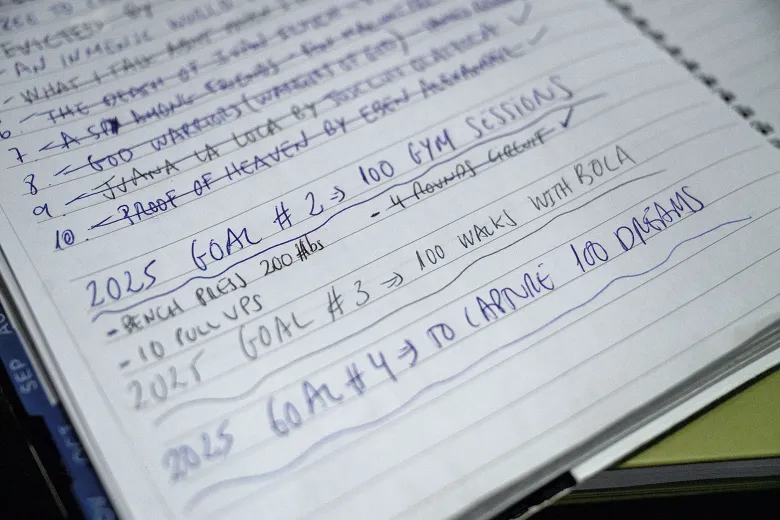 EVICTED BY
- AN INMENIC WORLD
- WHAT I TALK ABOUT
6. - THE DEATH OF IVAN
7. - A SPY AMONG FRIENDS -
8. - GOD WARRIORS (
9. - JUANA LA LOCA BY
10. - PROOF OF HEAVEN BY EBEN ALEXANDER ✓
2025 GOAL # 2 => 100 GYM SESSIONS
- BENCH PRESS 200 lbs - 4 ROUNDS CIRCUIT ✓
- 10 PULL UPS
2025 GOAL # 3 => 100 WALKS WITH BOLA
2025 GOAL # 4 => TO CAPTURE 100 DREAMS
SEP